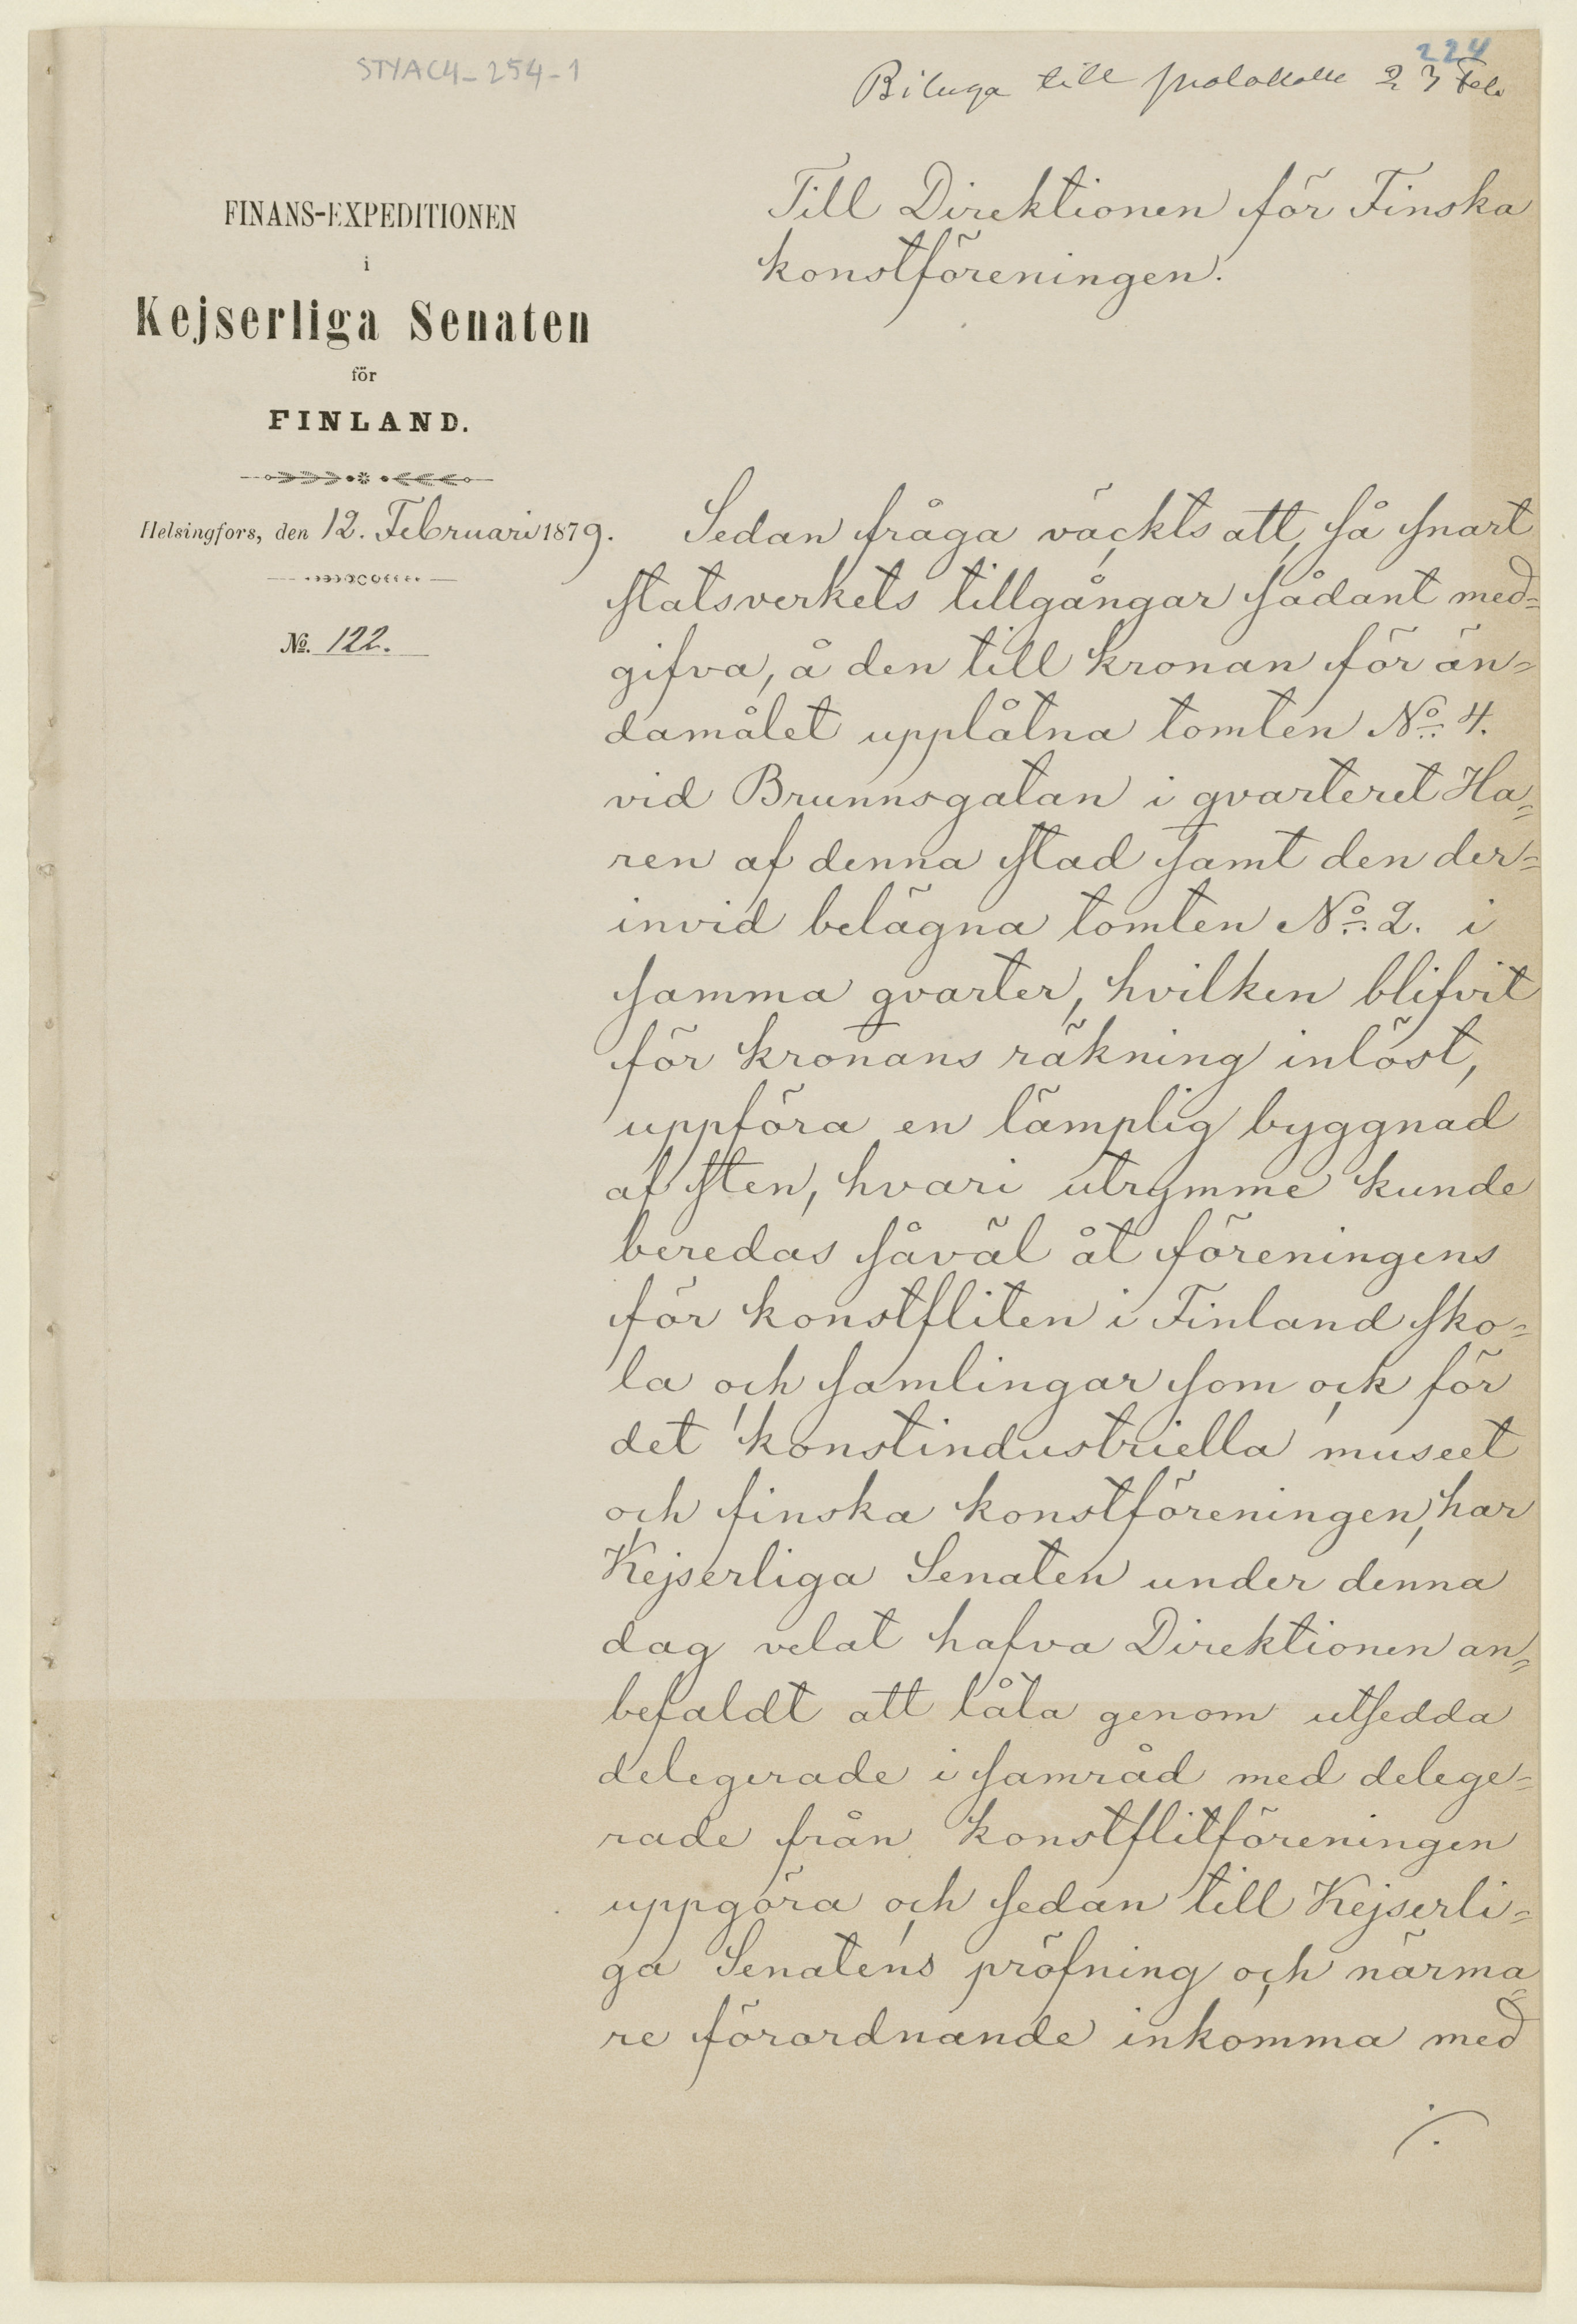 STYAC4-254-1
224
Bilaga till protokollet 23 Feb
FINANS-EXPEDITIONEN
i
Kejserliga Senaten
för
FINLAND.
Helsingfors, den 12. Februari 1879.
No. 122.
Till Direktionen för Finska
konstföreningen.
Sedan fråga väckts att, så snart
statsverkets tillgångar sådant med=
gifva, å den till kronan för än=
damålet upplåtna tomten No. 4.
vid Brunnsgatan i qvarteret Ha=
ren af denna stad samt den der=
invid belägna tomten No. 2. i
samma qvarter, hvilken blifvit
för kronans räkning inlöst,
uppföra en lämplig byggnad
af sten, hvari utrymme kunde
beredas såväl åt föreningens
för konstfliten i Finland sko=
la och samlingar som ock för
det konstindustriella museet
och finska konstföreningen, har
Kejserliga Senaten under denna
dag velat hafva Direktionen an=
befaldt att låta genom utsedda
delegerade i samråd med delege=
rade från konstflitföreningen
uppgöra och sedan till Kejserli=
ga Senatens pröfning och närma=
re förordnande inkomma med
./.